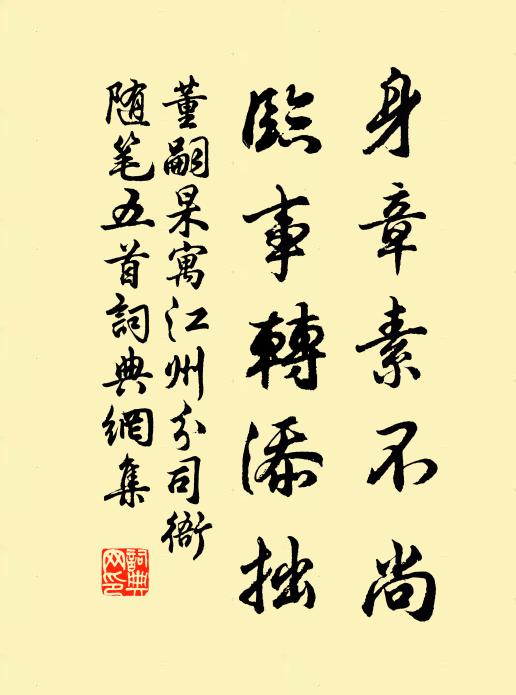 身章素不尚
臨事轉添拙
董嗣杲寓江州分司衙
随笔五首詞典網集
詞典
网印